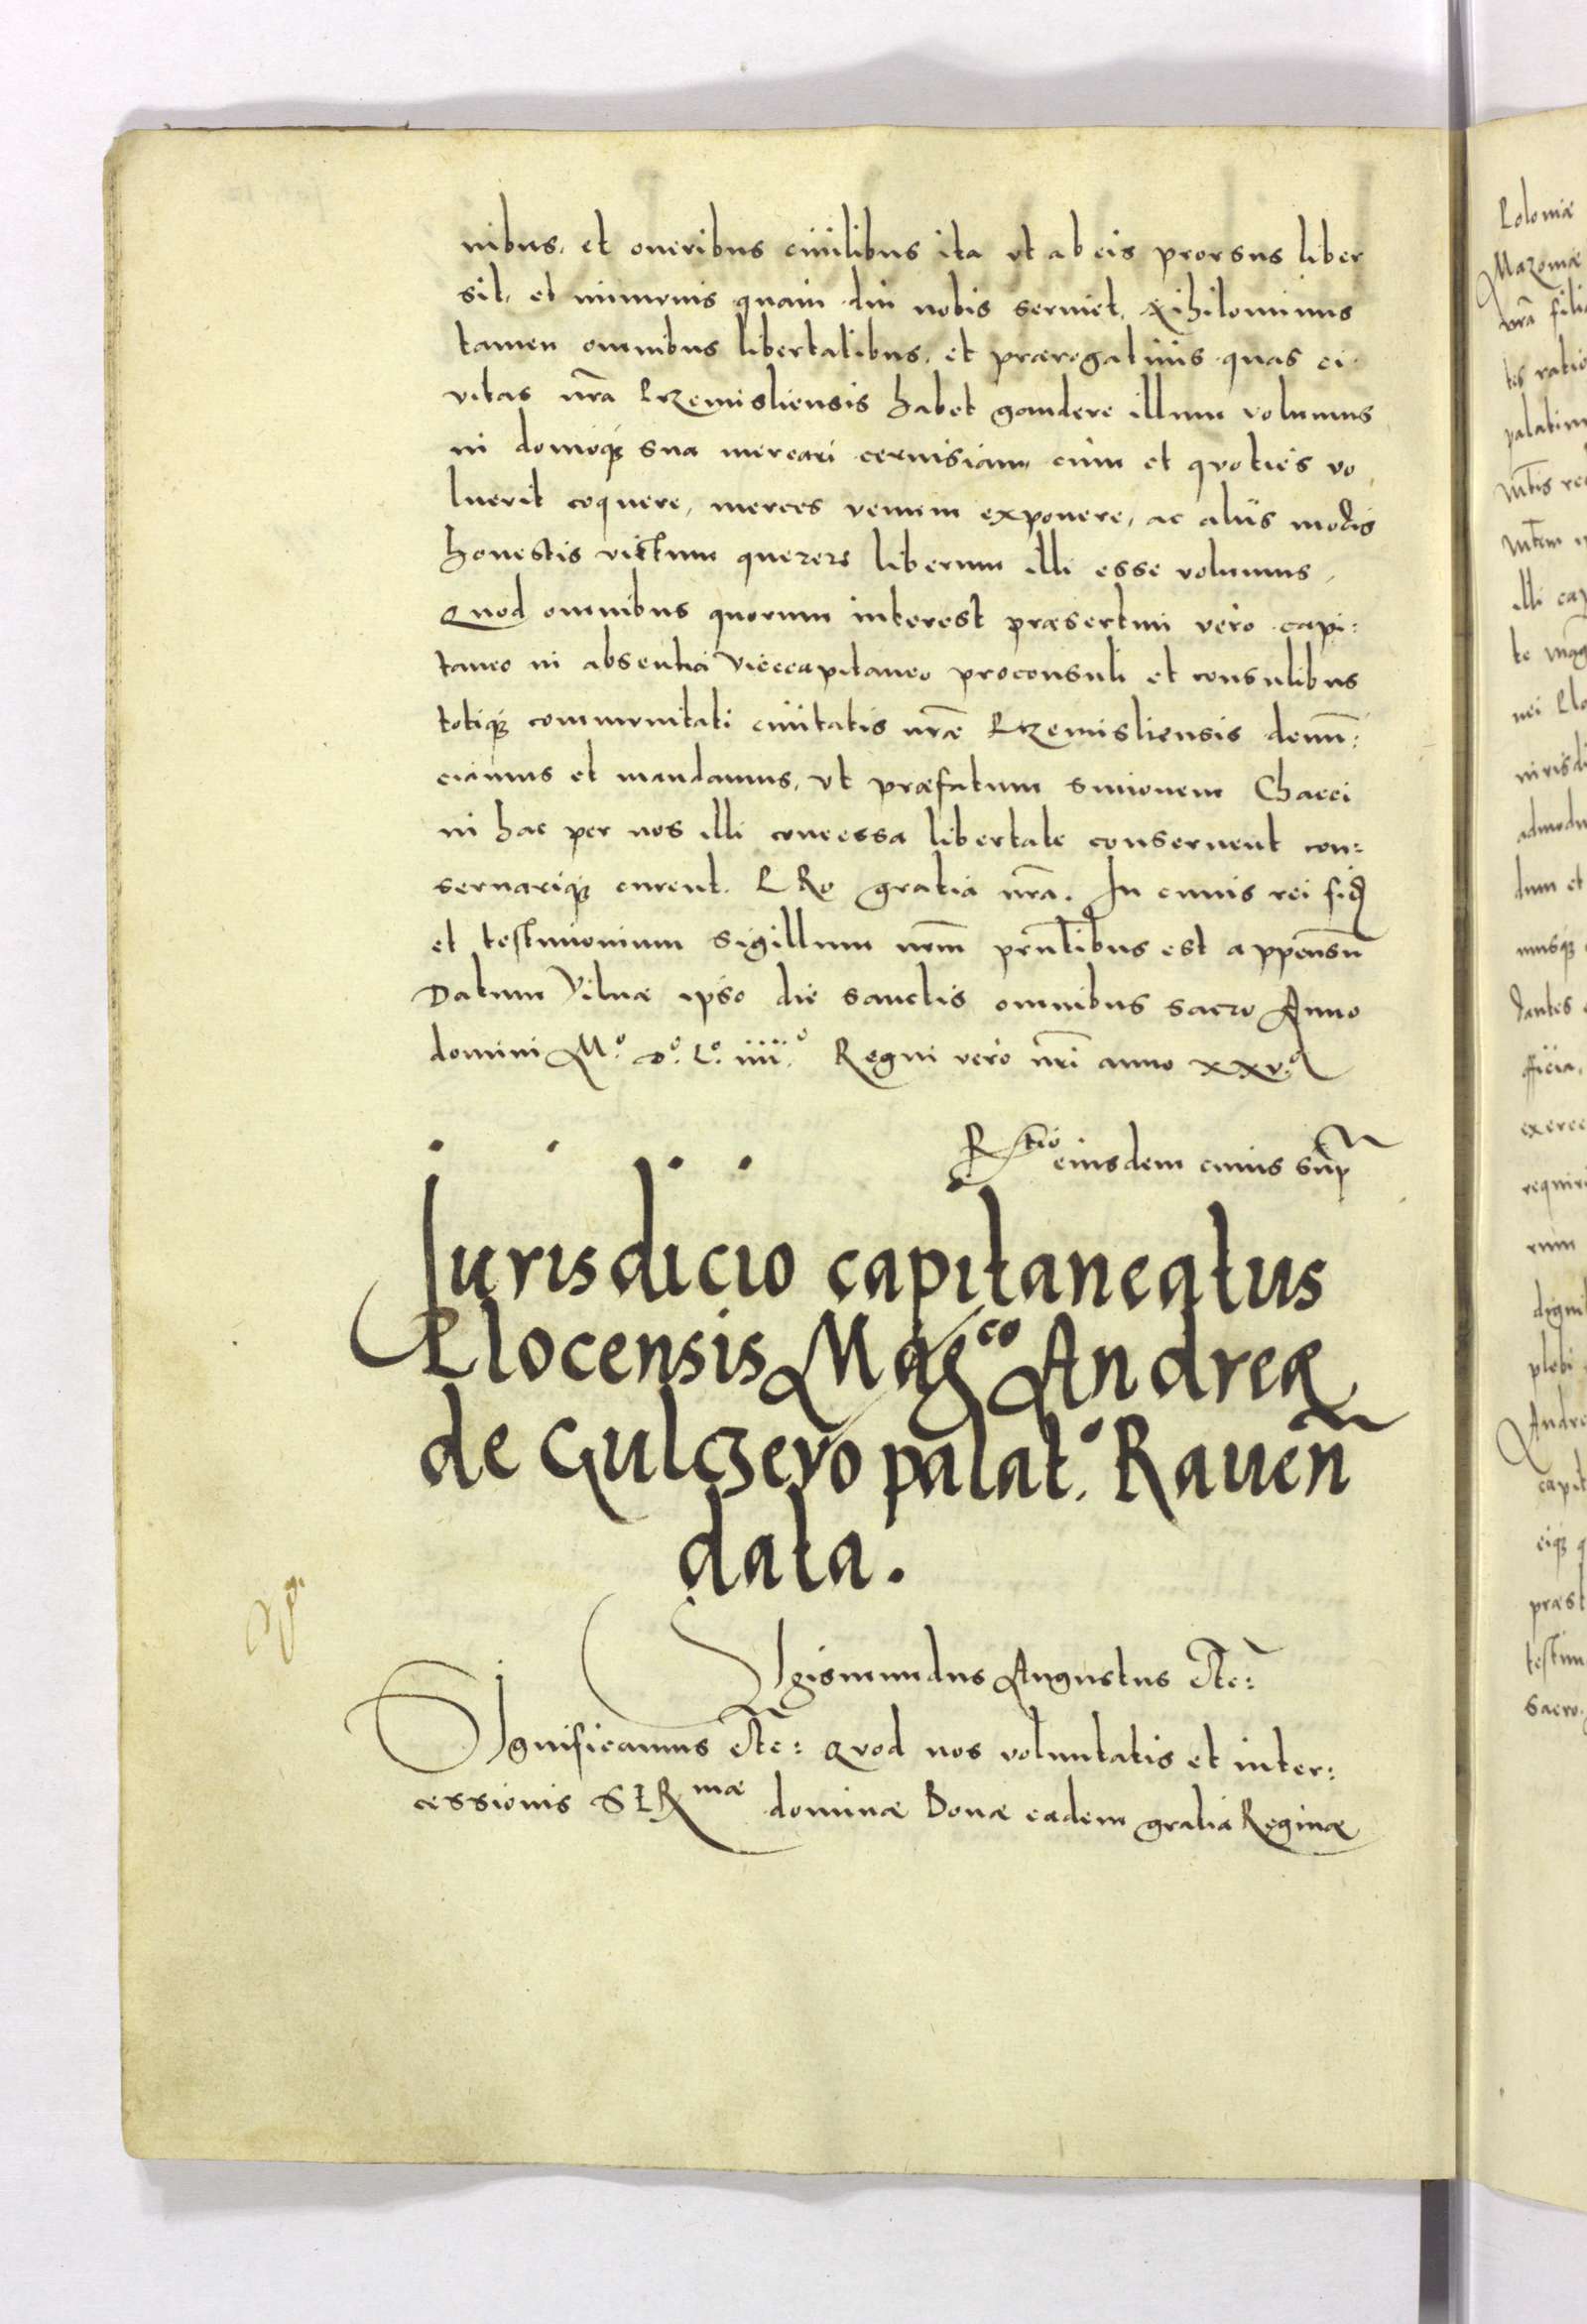 nibus, et oneribus ciuilibus ita vt ab eis prorsus liber
sit, et immunis quam diu nobis seruiet. Nihilominus
tamen omnibus libertatibus, et prærogatiuis quas ci
vitas nrā Przemisliensis habet gaudere illum volumus
in domoq̃ sua mercari ceruisiam cum et quoties vo
luerit coquere, merces venum exponere, ac aliis modis
honestis victum querere liberum illi esse volumus,
Quod omnibus quorum interest præsertim vero capi:
taneo in absentia Vicecapitaneo proconsuli et consulibus
totiq̃ communitati ciuitatis nræ Przemisliensis denun:
ciamus et mandamus, vt præfatum Simonem Chacci
in hac per nos illi concessa libertate conseruent con:
seruariq̃ curent. PRo gratia nrā. In cuius rei fidē
et testimonium sigillum nrm̄ prn̄tibus est appensū
Datum Vilnæ ipso die sanctis omnibus sacro Anno
domini M.º D.º L.º iiii.º Regni vero nrī anno xxv.º
Rtio eiusdem cuius supr̃
Iurisdicio capitaneatus
Plocensis Mag.co Andreæ
de Gulczevo palat.º Rauen̄
data.
Sigismundus Augustus etc:
Significamus etc: Quod nos voluntatis et inter:
cessionis SER mæ dominæ Bonæ eadem gratia Reginæ
Poloniæ
Mazouiæ
nrā filia
tes ratio
palatin
illi cap
te mag
nei Plo
iurisdi
admodu
dum et
nusq̃
dantes
fficia,
exerce
requir
rum
digni
plebi
Andre
capit
eiq̃ q
præst
testim
sacro.